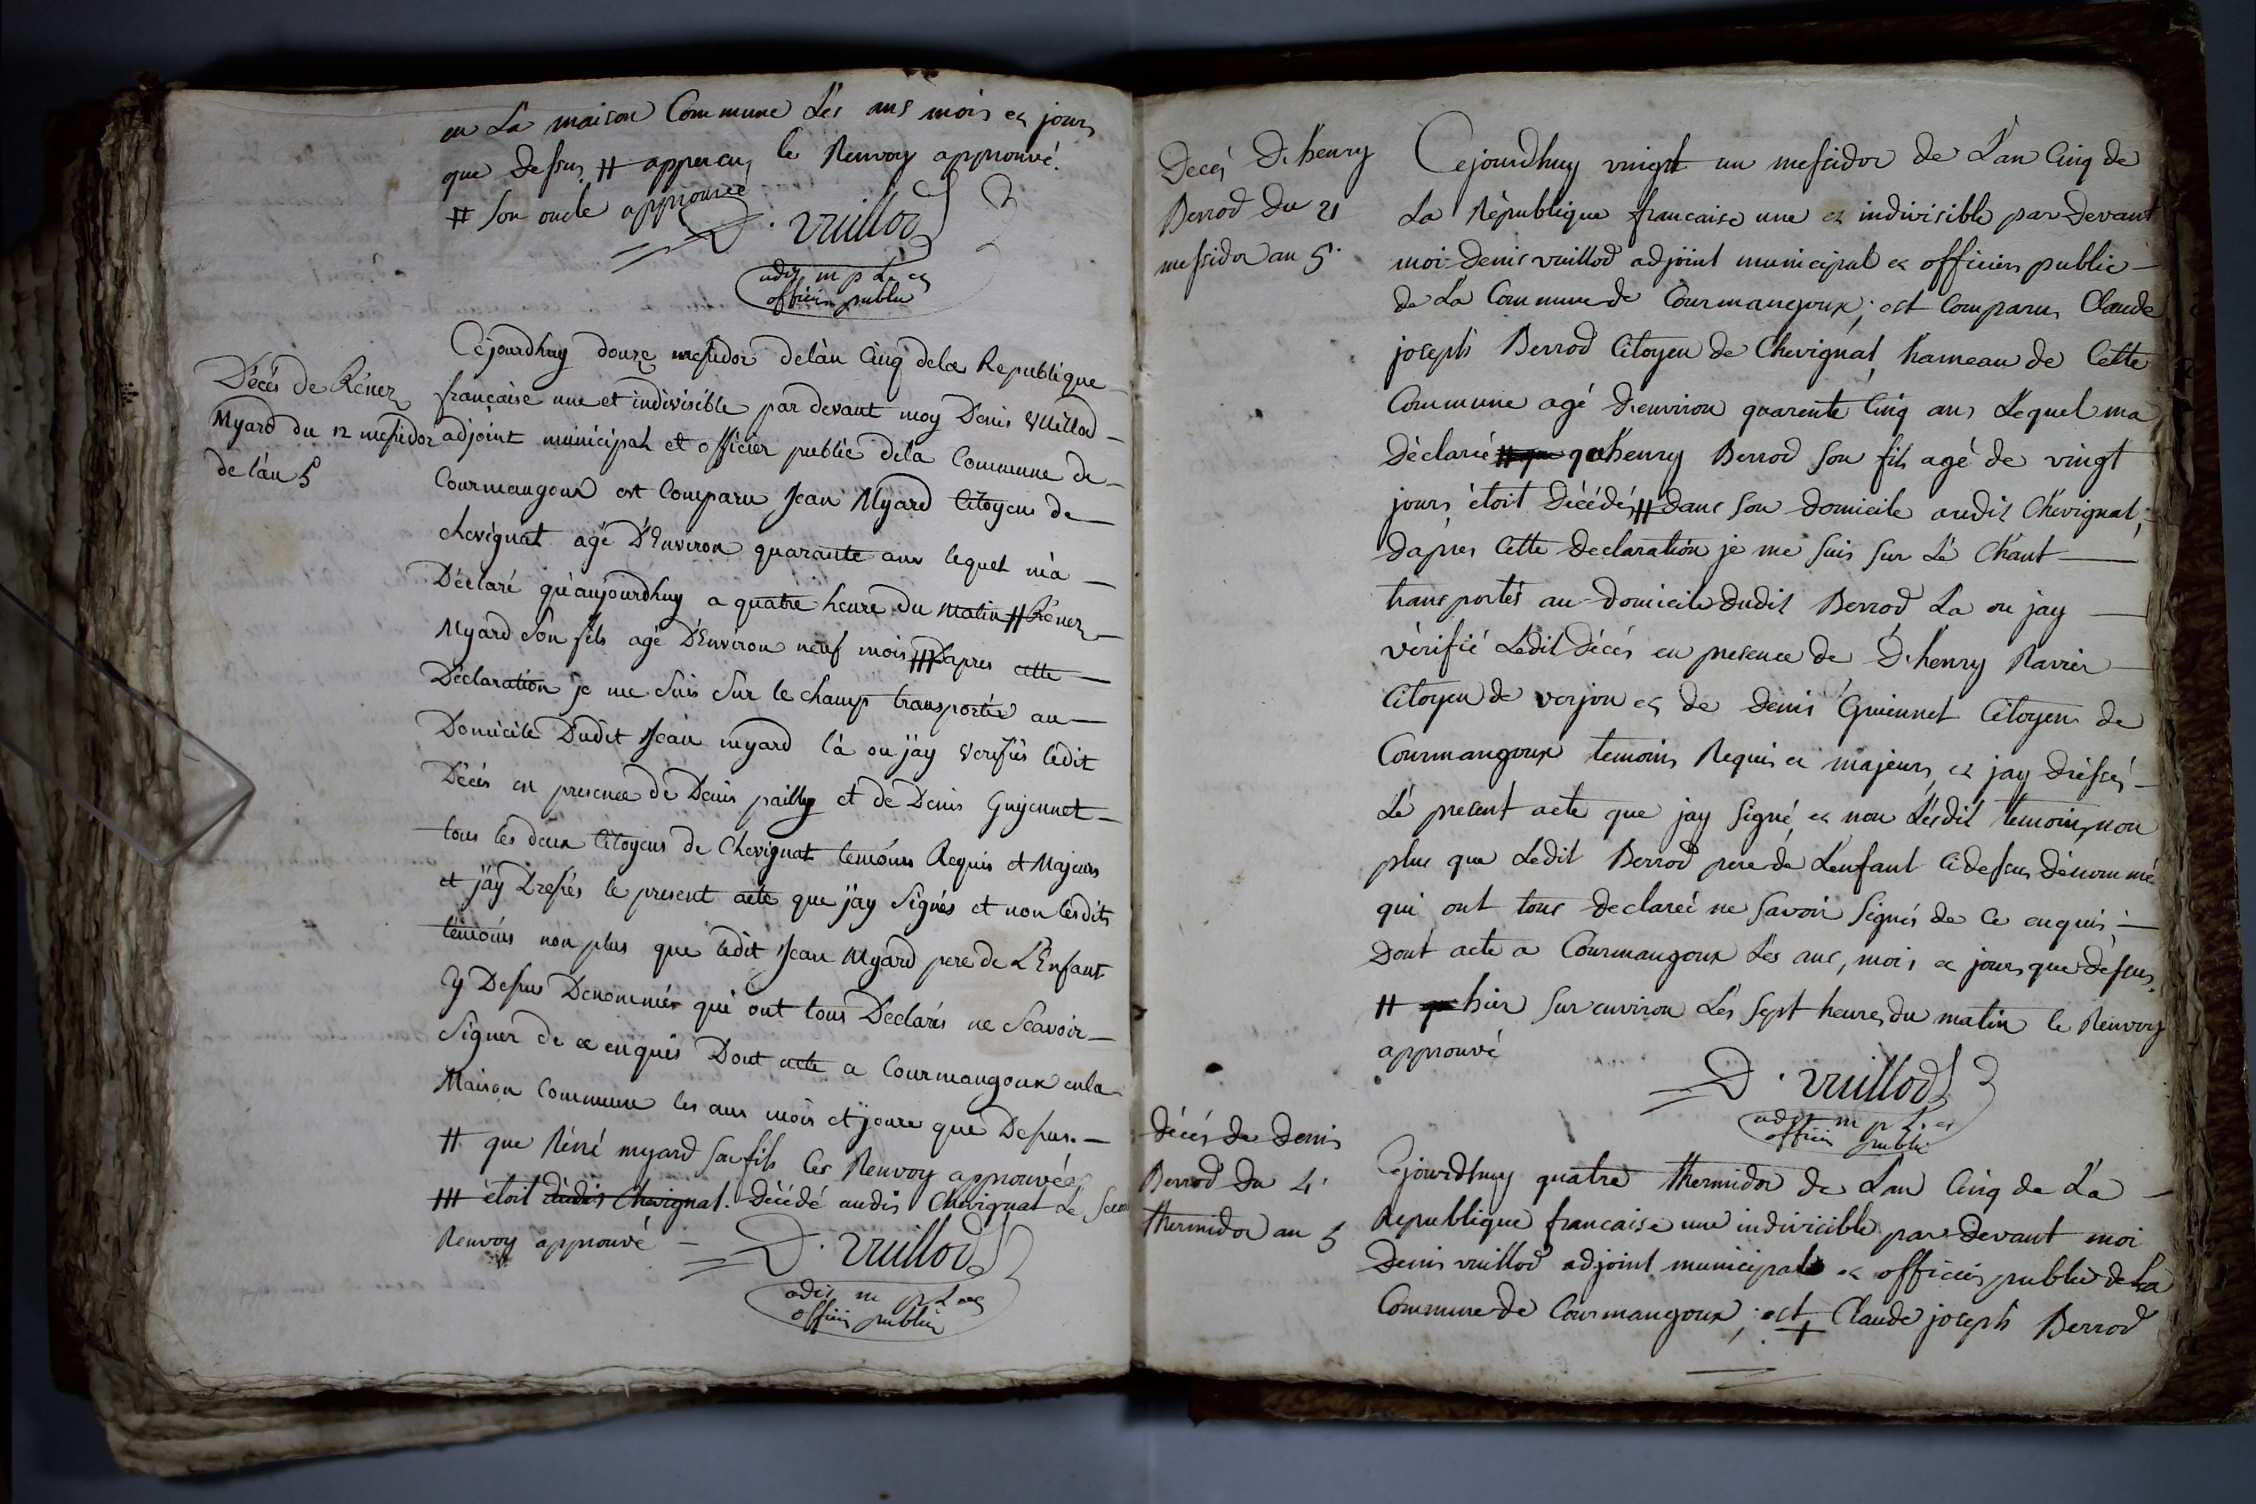 en La maison Commune Lés ans mois et jours
que dessus, # apperçu, le Renvoy approuvé.
# son oncle approuvé
D. Vuillod
adj. m p L et
officier public
Décés de Rénez
Myard du 12 messidor
de l'àn 5
Cejourdhuy douze messidor delàn Cinq dela Republique
française une et indivisible par devant moy Denis Vuillod
adjoint municipal et officier public dela Commune de
Courmangoux est Comparu Jean Myard Citoyen de
chevignat agé D'Environ quarante ans lequel m'a
Déclaré qu'aujourdhuy a quatre heure du matin # Rénez
Myard Son fils agé D'Environ neuf mois ### Dapres cette
Déclaration je me suis sur le champ transportér au
Domicile Dudit Jean myard là ou jäy Verifiés ledit
Décés en presence de Denis pailly et de Denis Guyennet
tous les deux Citoyens de Chevignat temoins Requis et Majeurs
et jäy Dressés le present acte que jäy Signés et non lesdits
temoins non plus que ledit Jean Myard pere de L'Enfant
Cy Dessus Denommér qui ont tous Déclarés ne Scavoir
Signer de ce enquis Dont acte a Courmangoux enla
Maison Commune les ans mois et joure que Dessus.
# que Réné myard son fils les Renvoy approuvés
### étoit dudit Chevignat. Décédé audit Chevignat Le Secon
Renvoy approuvé
D. Vuillod
adj. m p L et
officier public
Décés D. henry
Berrod du 21
messidor an 5.
Cejourdhuy vingt un messidor de L'an Cinq de
La République francaise une et indivisible par devant
moi Denis vuillod adjoint municipal et officier public
de La Commune de Courmangoux; est Comparu, Claude
joseph Berrod Citoyen de Chevignat, hameau de Cette
Commune agé d'environ quarente Cinq ans Lequel ma
déclaré # que que henry Berrod son fils agé de vingt
jours, étoit décédés # dans son domicile audit Chevignat;
dapres Cette declaration je me suis sur Lé Chant
transportés au domicile dudit Berrod La ou jay
vérifié Ledit décés en presence de D. henry Ravier
Citoyen de verjon et de denis Guiennet Citoyen de
Courmangoux temoins Requis et majeurs, et jay dréssé
Lé present acte que jay signé, et non Lésdit temoins, non
plus que Ledit Berrod pere de L'enfant Cidessus dénommé
qui ont tous declareé ne savoir signés de Ce enquis,
dont acte a Courmangoux Lés ans, mois et jours que dessus.
# que hier sur environ Lés sept heures du matin le Renvoy
approuvé
D. Vuillod
adj. m p L. et
officier public
Décés de denis
Berrod du 4
thermidor an 5
Cejourdhuy quatre thermidor de L'an Cinq de La
Republique francaise une indivicible par devant moi
Denis vuillod adjoint municipal et officier public de La
Commune de Courmangoux; est + Claude joseph Berrod